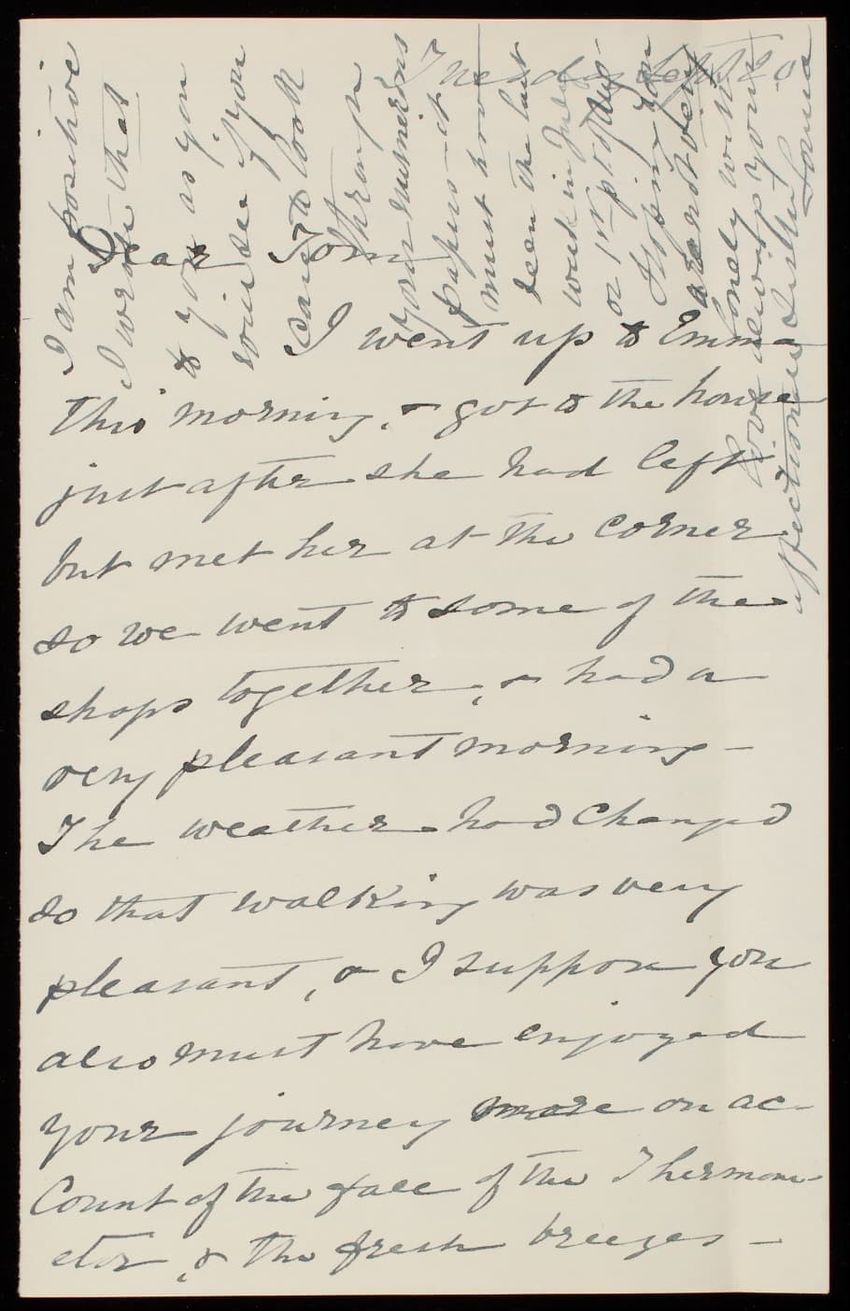 Tuesday Sept 20
Dear Tom
I went up to Emma
this morning, & got to the house
just after she had left
but met her at the corner
so we went to some of the
shops together, & had a
very pleasant morning -
The weather had changed
so that walking was very
pleasant, & I suppose you
also must have enjoyed
your journey more on ac-
count of the fall of the Thermom-
etor, & the fresh breezes -
I am positive
I wrote that
to you as you
will see if you
care to look
through
your numerous
papers - it
must have
been the last
week in July
or 1st pt of Aug -
Hoping you
are not very
lonely with
love always your
affectionate Sister
Louisa